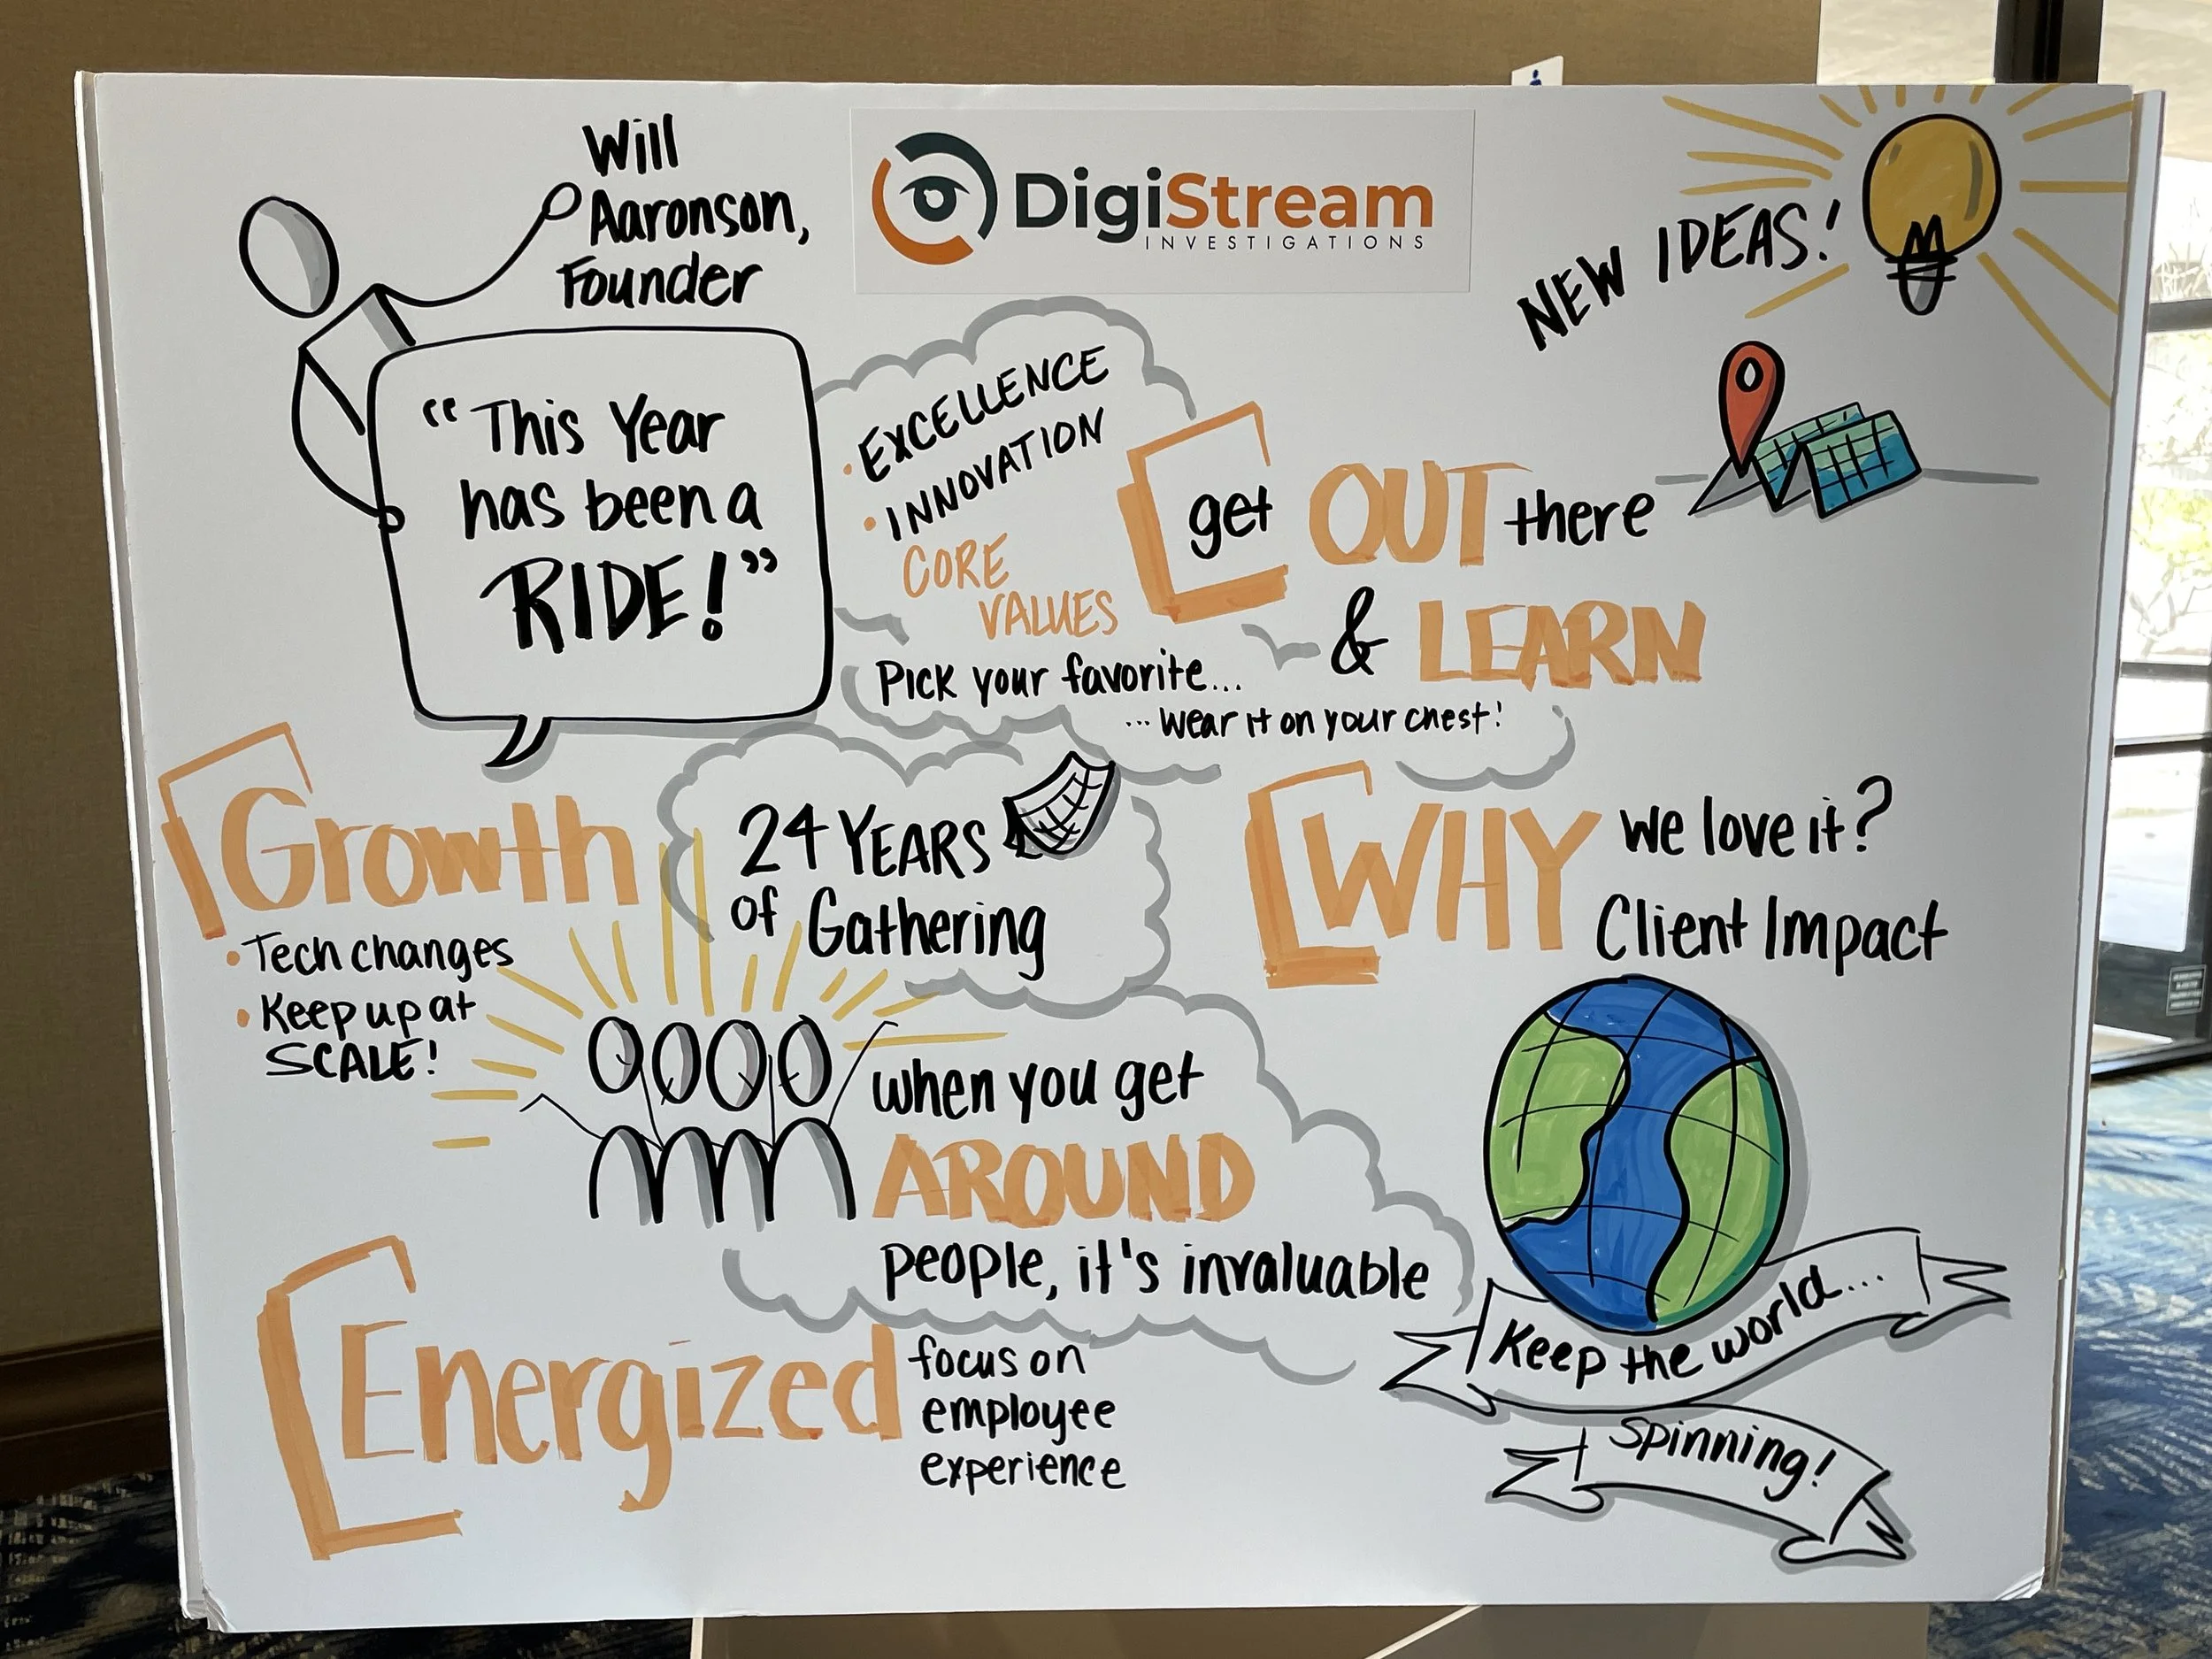 Will
Aaronson,
Founder
DigiStream
INVESTIGATIONS
NEW IDEAS!
"This Year
has been a
RIDE!"
• EXCELLENCE
• INNOVATION
CORE
VALUES
Pick your favorite...
... wear it on your chest!
get OUT there
& LEARN
Growth
• Tech changes
• Keep up at
SCALE!
24 YEARS
of Gathering
WHY we love it?
Client Impact
when you get
AROUND
people, it's invaluable
Energized
focus on
employee
experience
Keep the world....
Spinning!